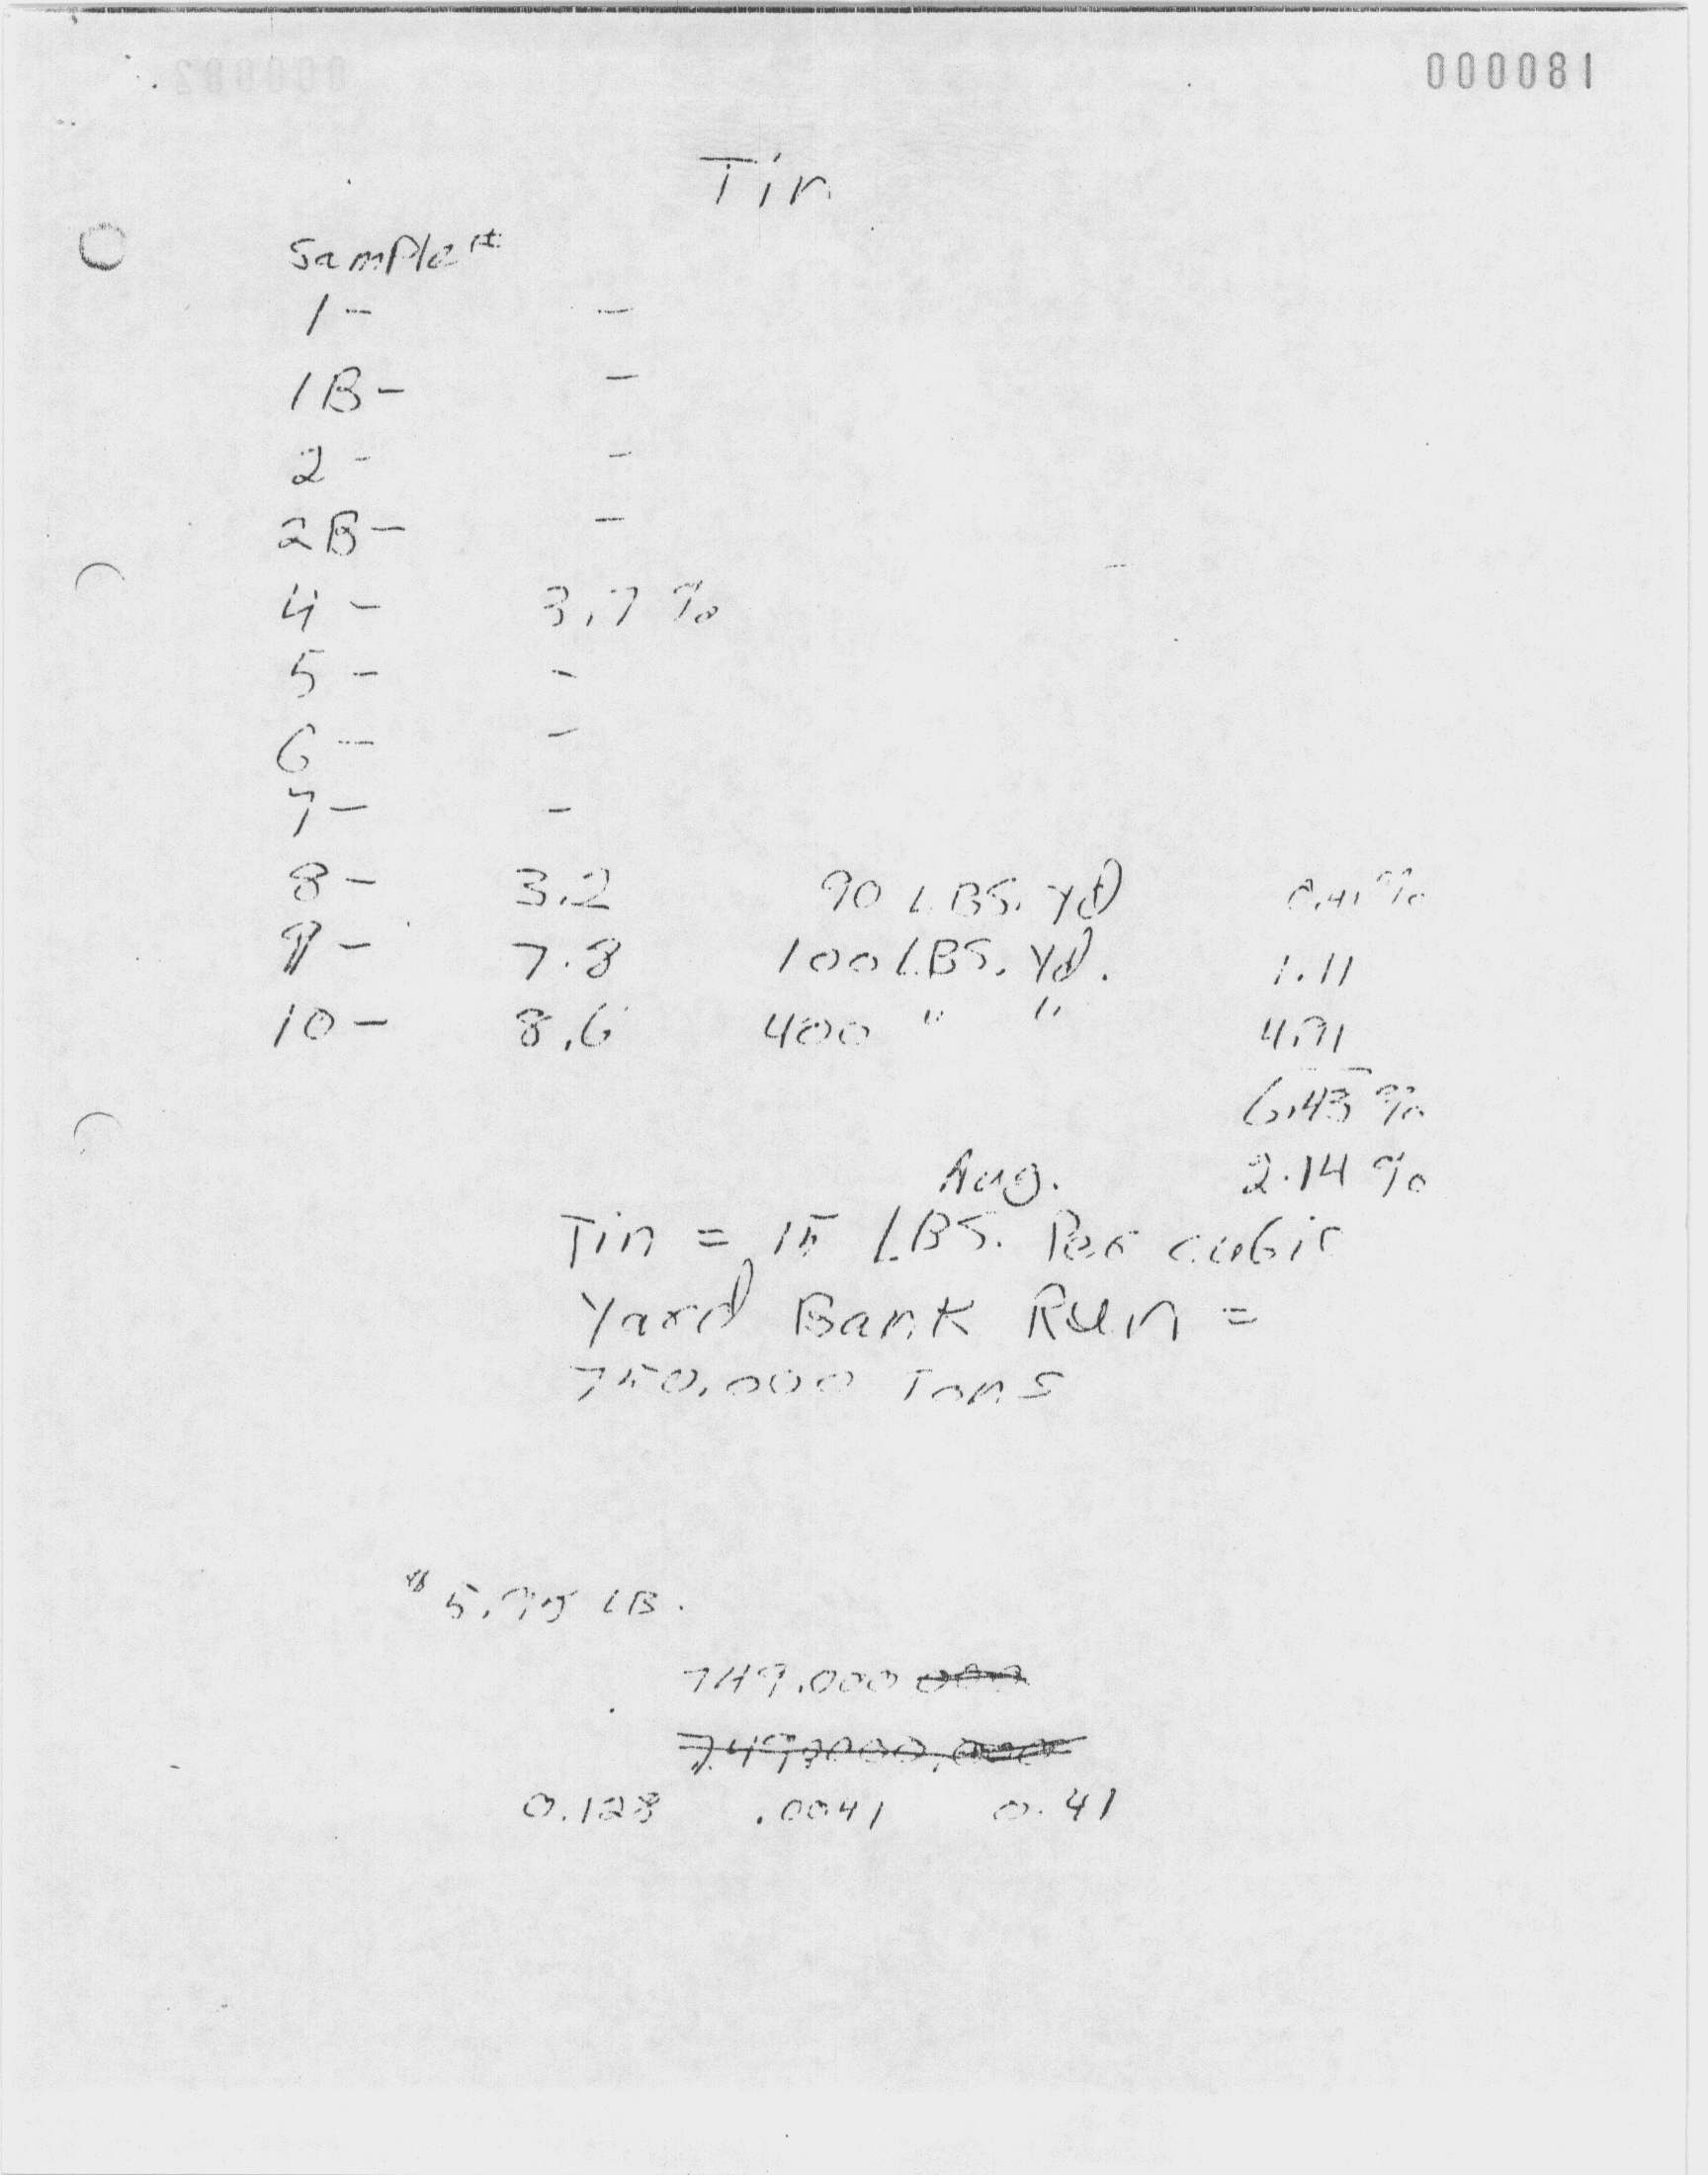 000081
Tin
Sample #
1 - -
1B - -
2 - -
2B - -
4 - 3.7 %
5 - -
6 - -
7 - -
8 - 3.2 90 LBS. Yd 0.41 %
9 - 7.8 100 LBS. Yd. 1.11
10 - 8.6 400 " " 4.91
6.43 %
Aug. 2.14 %
Tin = 15 LBS. Per cubic
Yard Bank Run =
750,000 Tons
$ 5.95 LB.
749,000 000
7,49,000,000
0.128 .0041 0.41